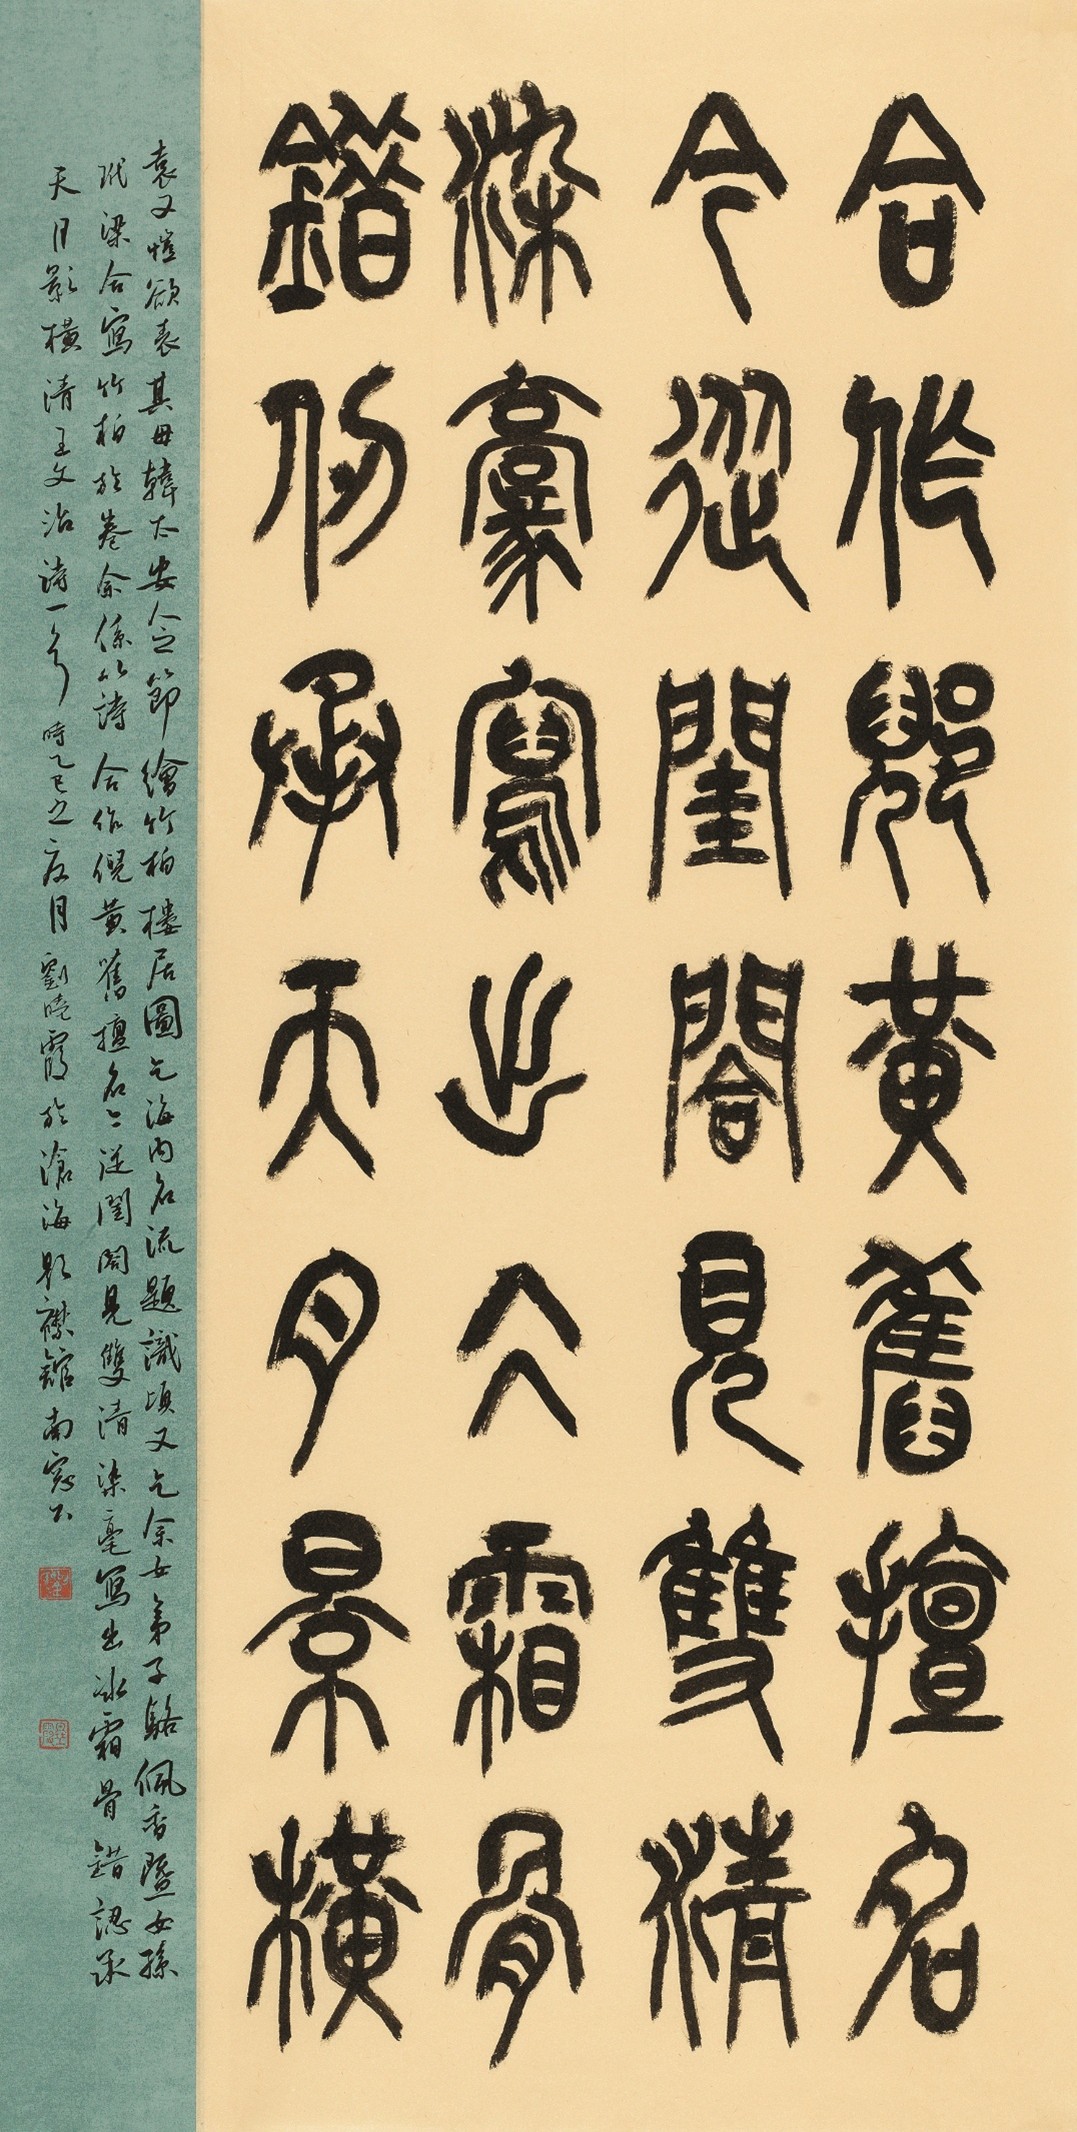 合作郳黃舊擅名
今從閨閤見雙清
染豪寫出仌霜骨
錯仞承天月景橫
袁又愷欲表其母韓太安人之節繪竹柏樓居圖乞海內名流題識頃又乞余女弟子駱佩香暨女孫
玳梁合寫竹柏於卷余係以詩合作倪黃舊擅名今從閨閤見雙清染毫寫出冰霜骨錯認承
天月影橫清王文治詩一首時乙巳之夏月劉曉霞於滄海襟館南窗下